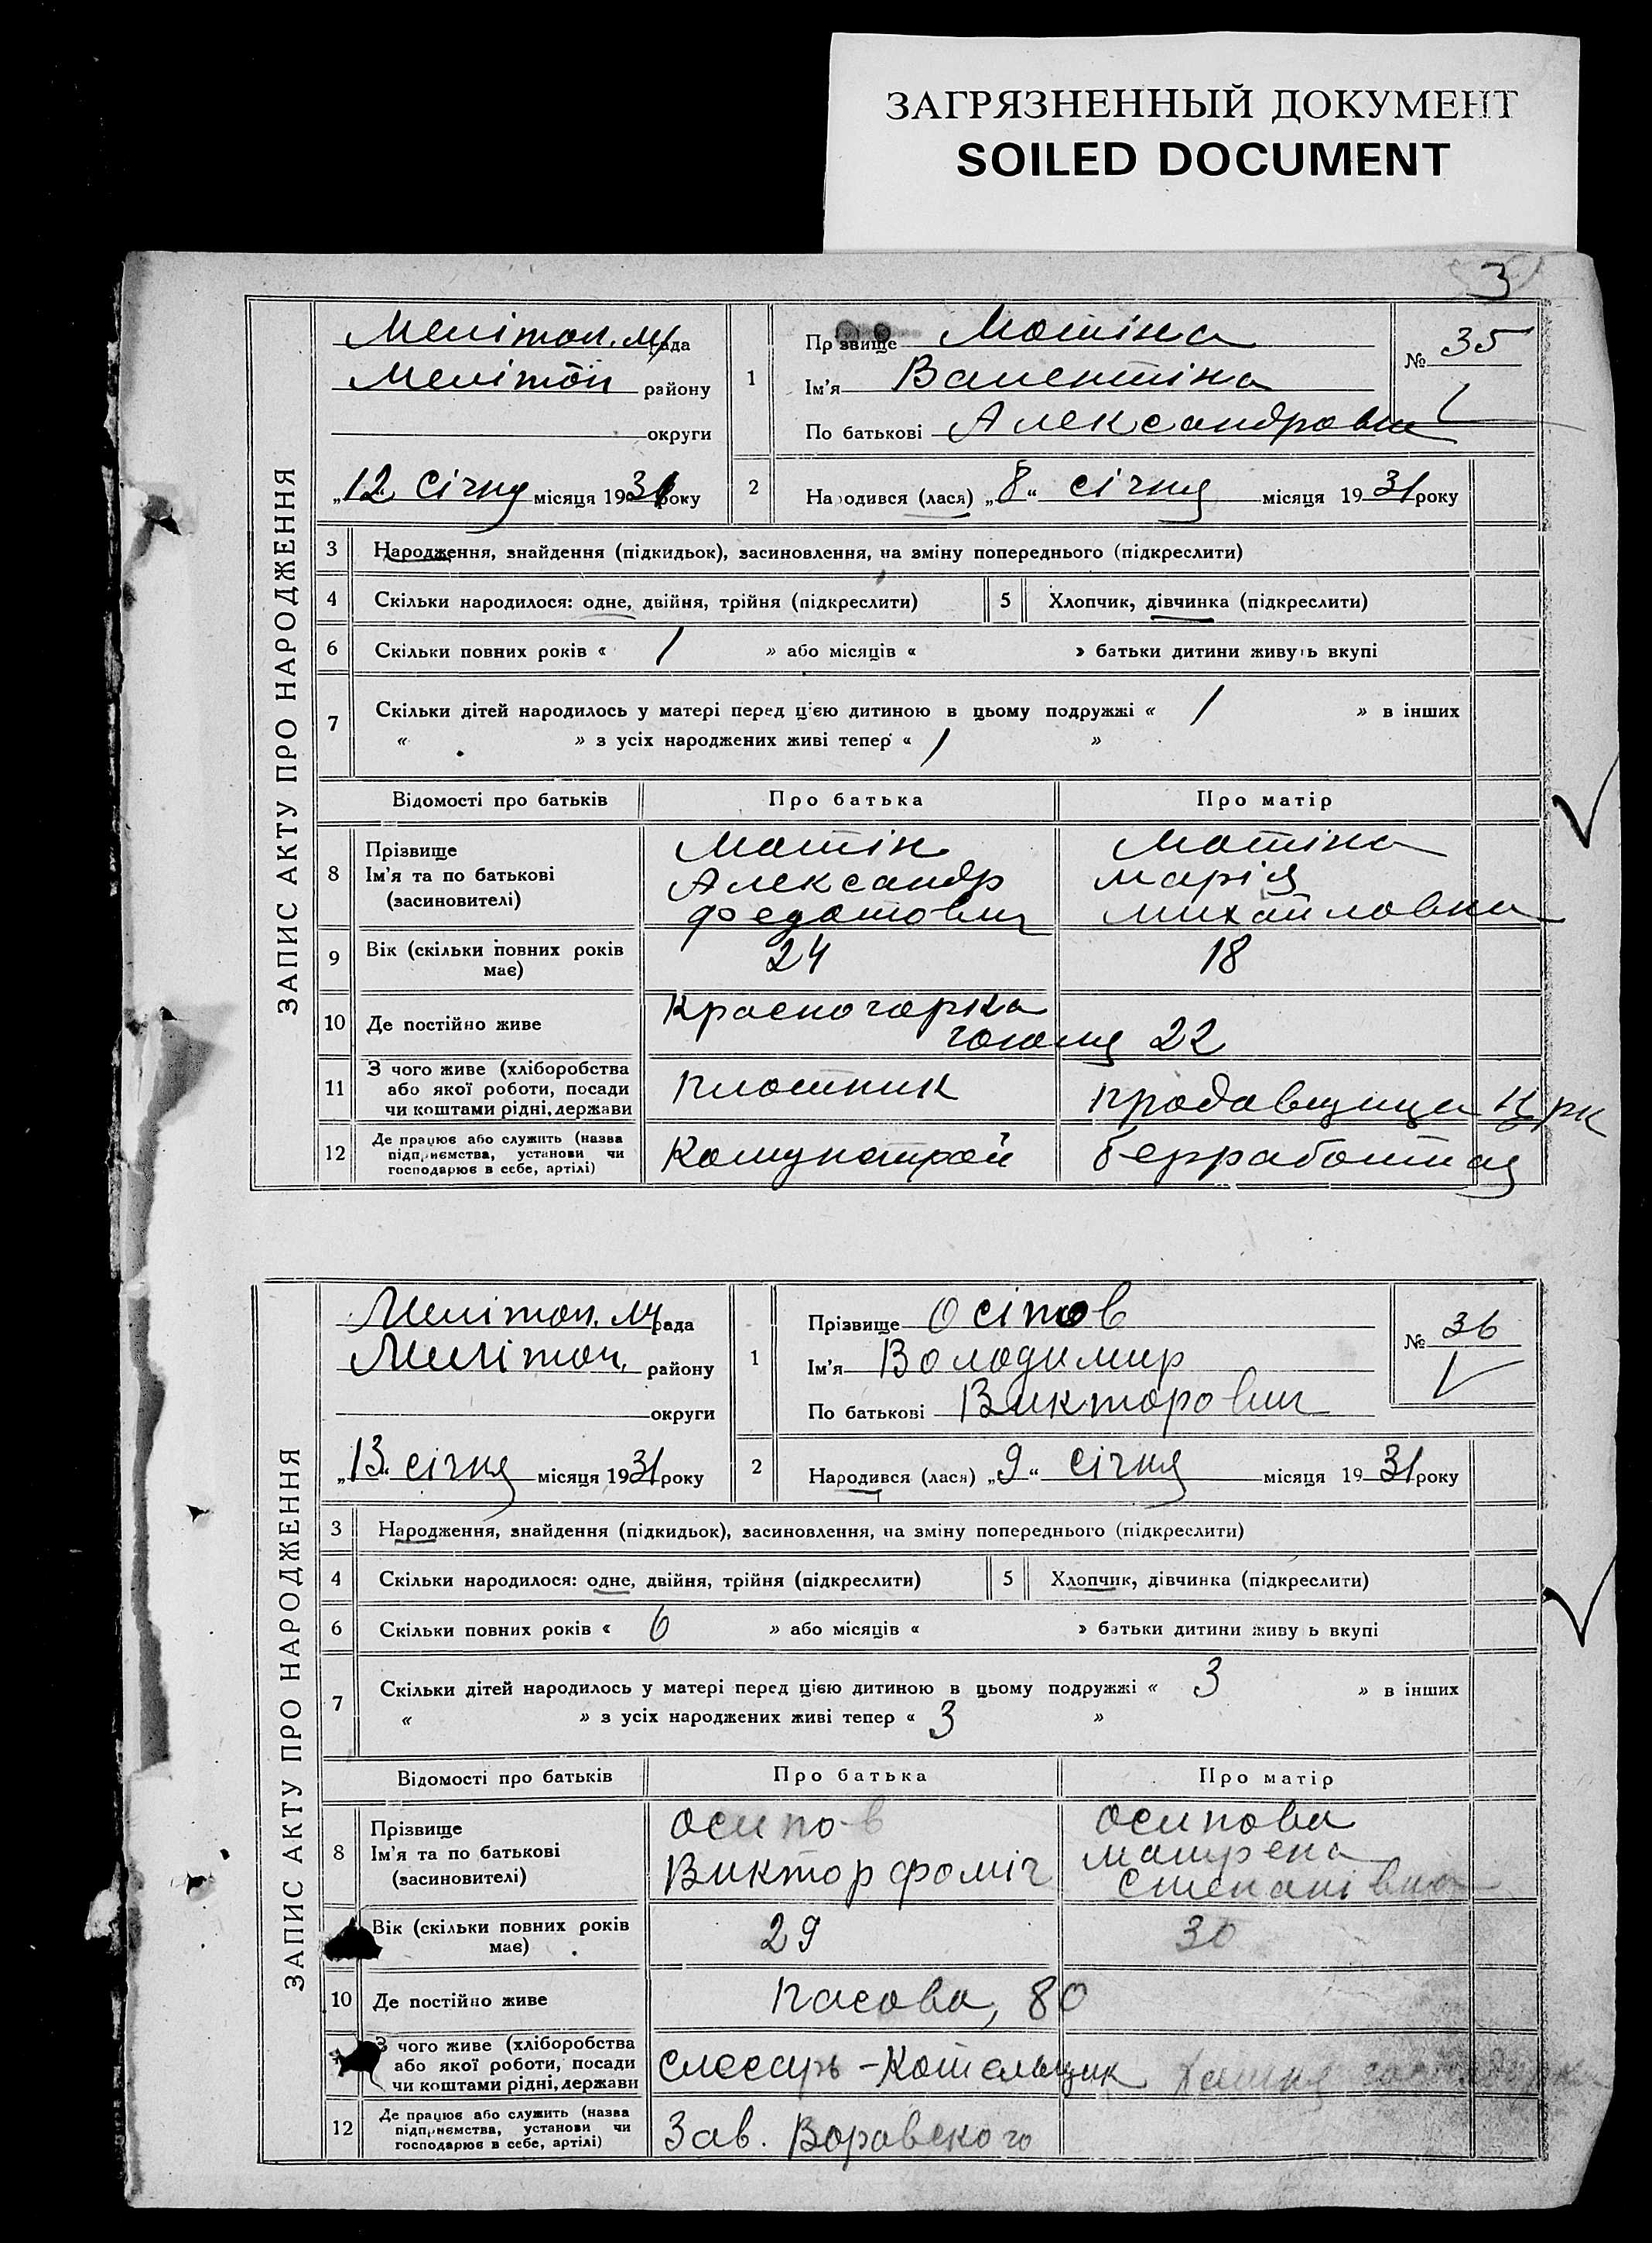 ЗАГРЯЗНЕННЫЙ ДОКУМЕНТ
SOILED DOCUMENT
3
ЗАПИС АКТУ ПРО НАРОДЖЕННЯ
Мелітоп. М/рада
Мелітоп району
округи
„12 січня місяця 1931 року
1
Прізвище Мотіна
Ім'я Валентіна
По батькові Александровна
№ 35
2
Народився (лася) „8“ січня місяця 1931 року
3 Народження, знайдення (підкидьок), засиновлення, на зміну попереднього (підкреслити)
4 Скільки народилося: одне, двійня, трійня (підкреслити) 5 Хлопчик, дівчинка (підкреслити)
6 Скільки повних років « 1 » або місяців « » батьки дитини живуть вкупі
7 Скільки дітей народилось у матері перед цією дитиною в цьому подружжі « 1 » в інших
« » з усіх народжених живі тепер « 1 »
Відомості про батьків Про батька Про матір
8 Прізвище Ім'я та по батькові (засиновителі)
Мотін Александр Федотович
Мотіна Марія Михайловна
9 Вік (скільки повних років має) 24 18
10 Де постійно живе Красногорка 22
11 З чого живе (хліборобства або якої роботи, посади чи коштами рідні, держави Плотник Продавщица Црк
12 Де працює або служить (назва підприємства, установи чи господарює в себе, артілі) Комунстрой
ЗАПИС АКТУ ПРО НАРОДЖЕННЯ
Мелітоп. М/рада
Мелітоп. району
округи
„13“ січня місяця 1931 року
1
Прізвище Осіпов
Ім'я Володимир
По батькові Викторович
№ 36
2
Народився (лася) „9“ січня місяця 1931 року
3 Народження, знайдення (підкидьок), засиновлення, на зміну попереднього (підкреслити)
4 Скільки народилося: одне, двійня, трійня (підкреслити) 5 Хлопчик, дівчинка (підкреслити)
6 Скільки повних років « 6 » або місяців « » батьки дитини живуть вкупі
7 Скільки дітей народилось у матері перед цією дитиною в цьому подружжі « 3 » в інших
« » з усіх народжених живі тепер « 3 »
Відомості про батьків Про батька Про матір
8 Прізвище Ім'я та по батькові (засиновителі)
Осипов Виктор Фоміч
Осипова Матрена Степанівна
Вік (скільки повних років має) 29 30
10 Де постійно живе 80
З чого живе (хліборобства або якої роботи, посади чи коштами рідні, держави Слесарь-Котельщик
12 Де працює або служить (назва підприємства, установи чи господарює в себе, артілі) Зав. Воровского